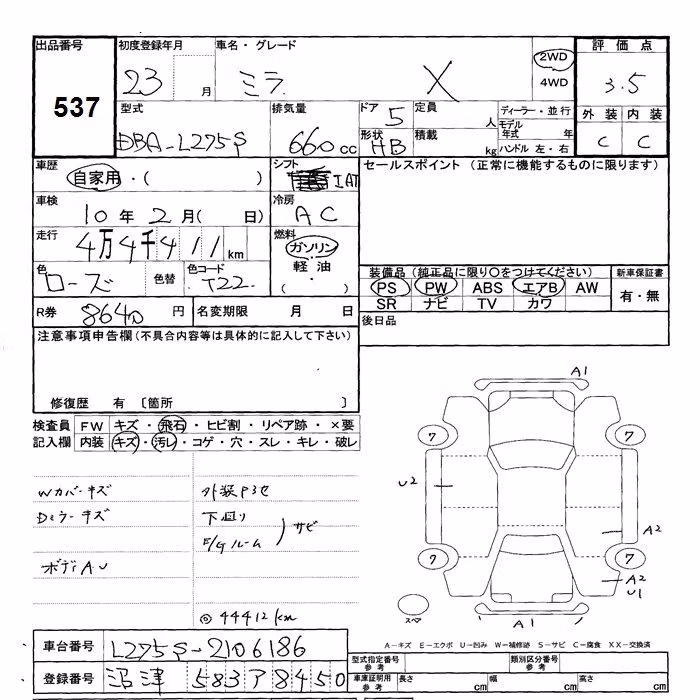 出品番号 初度登録年月 車名・グレード 2WD 評価点
537 23 月 ミラ X 4WD 3.5
型式 排気量 ドア 5 定員 人 ディーラー・並行 外装 内装
DBA-L275S 660 cc 形状 HB 積載 kg モデル年式 年 C C
ハンドル 左・右
車歴 シフト セールスポイント (正常に機能するものに限ります)
自家用・( ) IAT
車検 冷房
10年 2月( 日) AC
走行 燃料
4万4千411km ガソリン
軽油
・( )
色 色替 色コード
ローズ T22
装備品 (純正品に限り〇をつけてください) 新車保証書
PS PW ABS エアB AW 有・無
SR ナビ TV カワ
R券 8640 円 名変期限 月 日 後日品
注意事項申告欄 (不具合内容等は具体的に記入して下さい)
修復歴 有 〔箇所 〕
検査員 FW キズ・飛石・ヒビ割・リペア跡・×要
記入欄 内装 キズ・汚レ・コゲ・穴・スレ・キレ・破レ
Wカバーキズ 外装P3セ
Dミラーキズ 下廻り
F/Gルーム サビ
ボディAU
◎44412km
A1
7 7
U2
A2
7 7
A2
U1
スペア
A1
A-キズ E-エクボ U-凹み W-補修跡 S-サビ C-腐食 XX-交換済
車台番号 L275S-2106186 型式指定番号 参考 類別区分番号 参考
登録番号 沼津 583 フ 8450 車庫証明用 参考 長さ cm 幅 cm 高さ cm